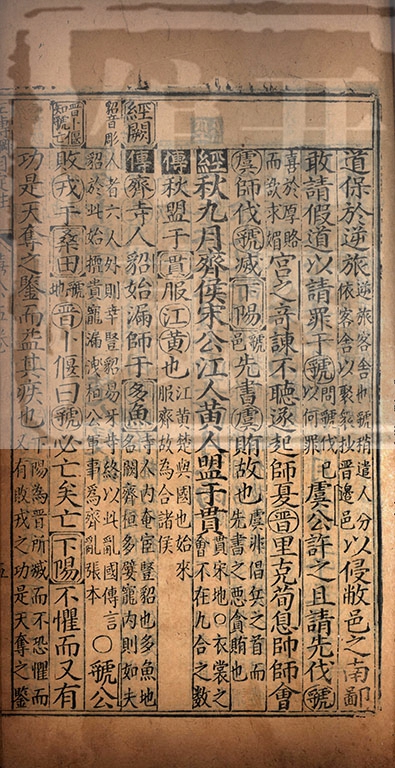 道保於逆旅逆旅客舍也虢稍遣人分依客舍以聚衆抄晉邊邑以侵敝邑之南鄙
敢請假道以請罪于虢問虢伐己以何罪虞公許之且請先伐虢
喜於厚賂而欲求媚宮之奇諫不聽遂起師夏晉里克荀息帥師會
虞師伐虢滅下陽虢邑先書虞賄故也虞非倡兵之首而先書之惡貪賄也
經秋九月齊侯宋公江人黃人盟于貫貫宋地○衣裳之會不在九合之數
傳秋盟于貫服江黃也江黃楚與國也始來服齊故為合諸侯
經闕傳齊寺人貂始漏師于多魚寺人内奄官豎貂也多魚地名闕齊桓多嬖寵内則如夫
貂音彫
人者六人外則幸豎貂易牙等終以此亂國傳言貂於此始擅貴寵漏洩桓公軍事為齊亂張本○虢公
晉卜偃知虢亡
敗戎于桑田虢地晉卜偃曰虢必亡矣亡下陽不懼而又有
功是天奪之鑒而益其疾也下陽為晉所滅而不恐懼而又有敗戎之功是天奪之鑒